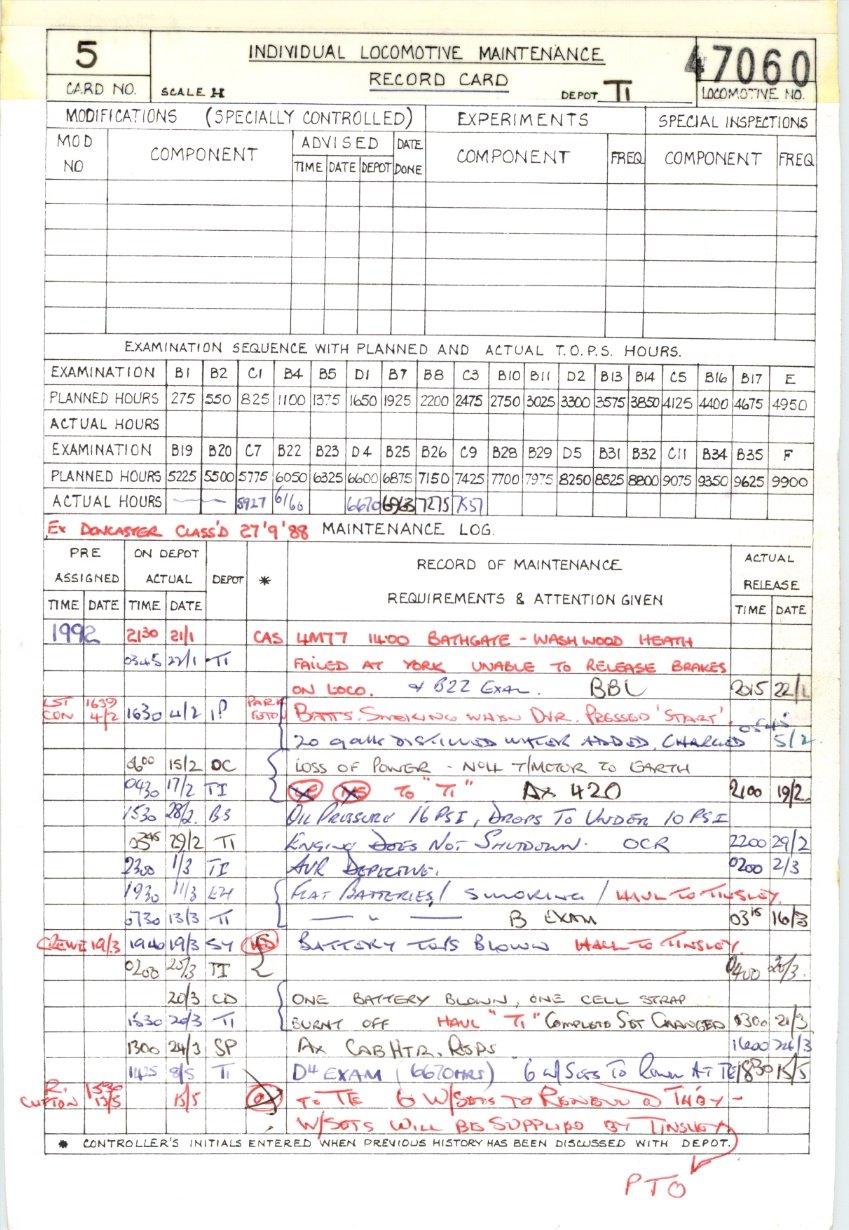 5 INDIVIDUAL LOCOMOTIVE MAINTENANCE 47060
RECORD CARD
CARD NO. SCALE H DEPOT TI LOCOMOTIVE NO.
MODIFICATIONS (SPECIALLY CONTROLLED) EXPERIMENTS SPECIAL INSPECTIONS
MOD NO COMPONENT ADVISED DATE DONE COMPONENT FREQ COMPONENT FREQ
TIME DATE DEPOT
EXAMINATION SEQUENCE WITH PLANNED AND ACTUAL T.O.P.S. HOURS.
EXAMINATION B1 B2 C1 B4 B5 D1 B7 B8 C3 B10 B11 D2 B13 B14 C5 B16 B17 E
PLANNED HOURS 275 550 825 1100 1375 1650 1925 2200 2475 2750 3025 3300 3575 3850 4125 4400 4675 4950
ACTUAL HOURS
EXAMINATION B19 B20 C7 B22 B23 D4 B25 B26 C9 B28 B29 D5 B31 B32 C11 B34 B35 F
PLANNED HOURS 5225 5500 5775 6050 6325 6600 6875 7150 7425 7700 7975 8250 8525 8800 9075 9350 9625 9900
ACTUAL HOURS 5927 6160 6670 6963 7275 7557
EX DONCASTER CLASS'D 27'9'88 MAINTENANCE LOG.
PRE ASSIGNED ON DEPOT ACTUAL DEPOT * RECORD OF MAINTENANCE ACTUAL RELEASE
REQUIREMENTS & ATTENTION GIVEN
TIME DATE TIME DATE TIME DATE
1992 2130 21/1 CAS 4M77 1400 BATHGATE - WASHWOOD HEATH
0345 22/1 TI FAILED AT YORK UNABLE TO RELEASE BRAKES
ON LOCO. & B22 EXAM. BBL 2015 22/1
LST CON 1639 4/2 1630 4/2 IP BATTS. SMOKING WHEN DVR. PRESSED 'START'.
20 galls DISTILLED WATER ADDED, CHARGED 0545 5/2
15/2 OC LOSS OF POWER - No4 T/MOTOR TO EARTH
0430 17/2 TI TO "TI" AX 420 2100 19/2
1530 28/2 BS OIL PRESSURE 16 PSI, DROPS TO UNDER 10 PSI
0345 29/2 TI ENGINE DOES NOT SHUTDOWN. OCR 2200 29/2
2300 1/3 TI AVR DEFECTIVE. 0200 2/3
1930 11/3 EH FLAT BATTERIES / SMOKING / HAUL TO TINSLEY.
0730 13/3 TI — " — B EXAM 0315 16/3
CREWE 19/3 1940 19/3 SY BATTERY BLOWN HAUL TO TINSLEY.
0200 TI 0400
20/3 CD ONE BATTERY BLOWN, ONE CELL STRAP
1530 20/3 TI BURNT OFF HAUL "TI" COMPLETE SET CHANGED 0300 21/3
1300 24/3 SP AX CAB HTR. RSPS 1600 24/3
1425 8/5 TI D4 EXAM (6670HRS) 6 W/SETS TO RENEW AT TE 1830 15/5
R. CLIFTON 1330 13/5 15/5 TO TE 6 W/SETS TO RENEW THEY -
W/SETS WILL BE SUPPLIED BY TINSLEY.
* CONTROLLER'S INITIALS ENTERED WHEN PREVIOUS HISTORY HAS BEEN DISCUSSED WITH DEPOT.
PTO